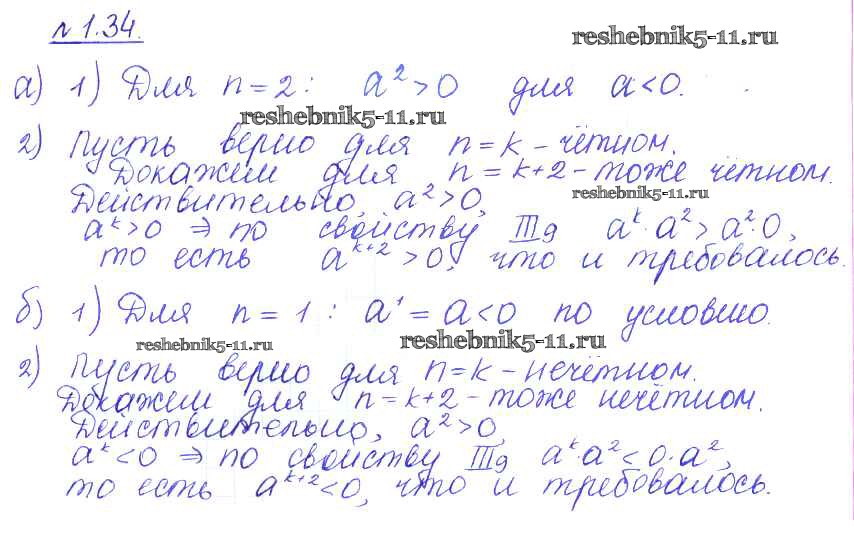 № 1.34.
reshebnik5-11.ru
а) 1) Для n = 2 : a² > 0 для a < 0.
reshebnik5-11.ru
2) Пусть верно для n = k – чётном.
Докажем для n = k+2 – тоже чётном.
reshebnik5-11.ru
Действительно, a² > 0,
aᵏ > 0 ⇒ по свойству IIIg aᵏ · a² > a² · 0,
то есть aᵏ⁺² > 0, что и требовалось.
б) 1) Для n = 1 : a¹ = a < 0 по условию.
reshebnik5-11.ru reshebnik5-11.ru
2) Пусть верно для n = k – нечётном.
Докажем для n = k+2 – тоже нечётном.
Действительно, a² > 0,
aᵏ < 0 ⇒ по свойству IIIg aᵏ · a² < 0 · a²,
то есть aᵏ⁺² < 0, что и требовалось.